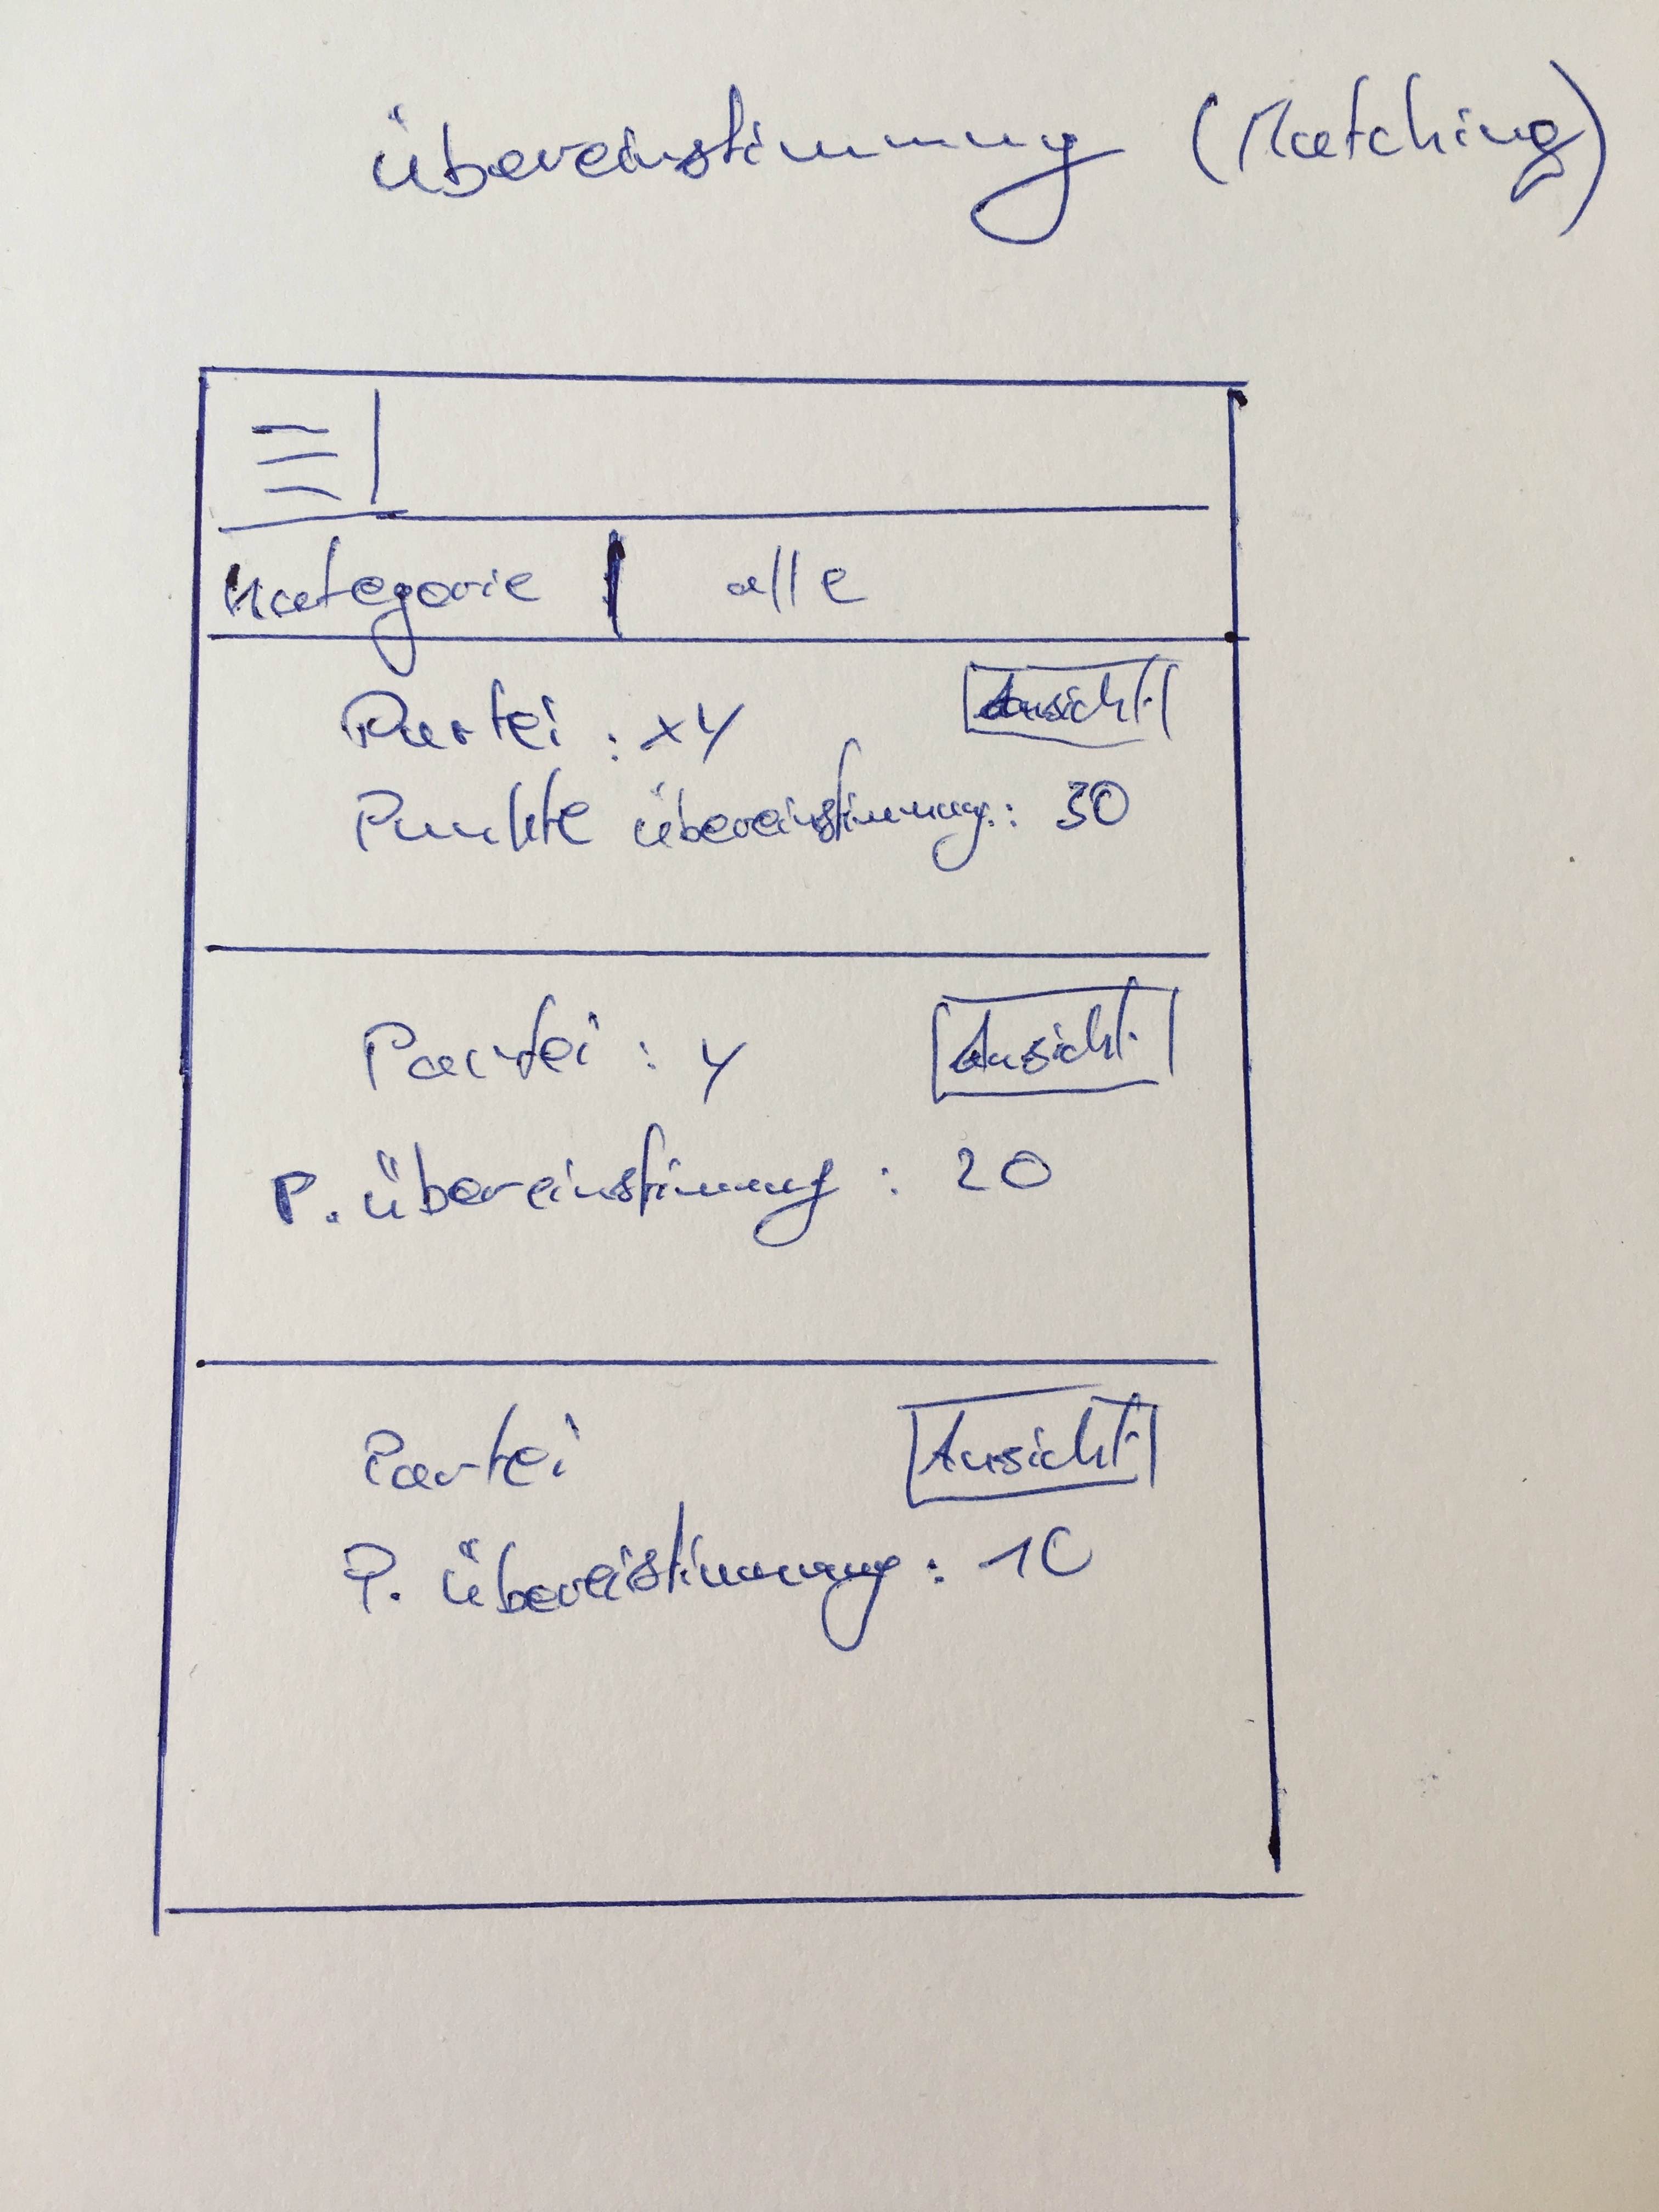 übereinstimmung (Matching)
Kategorie | alle
Partei : xy Ansicht
Punkte übereinstimmung : 30
Partei : y Ansicht
P. übereinstimmung : 20
Partei Ansicht
P. übereistimmung : 10